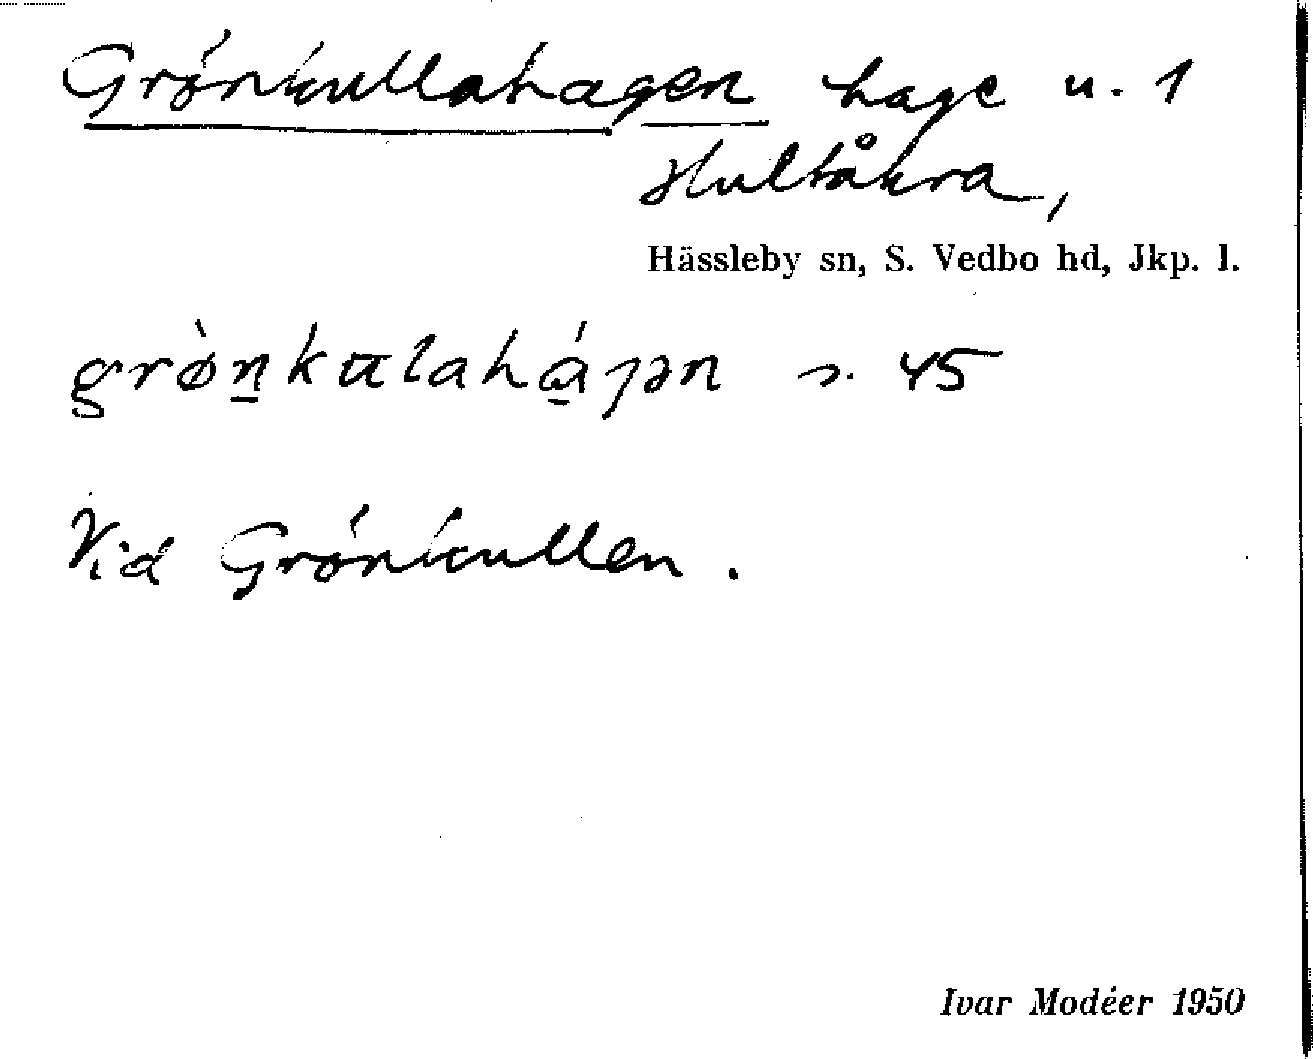 Grönkullahagen hage u. 1
Hultåkra,
Hässleby sn, S. Vedbo hd, Jkp. l.
grø̀n̠kulahá̠ɡən s. 45
Vid Grönkullen.
Ivar Modéer 1950